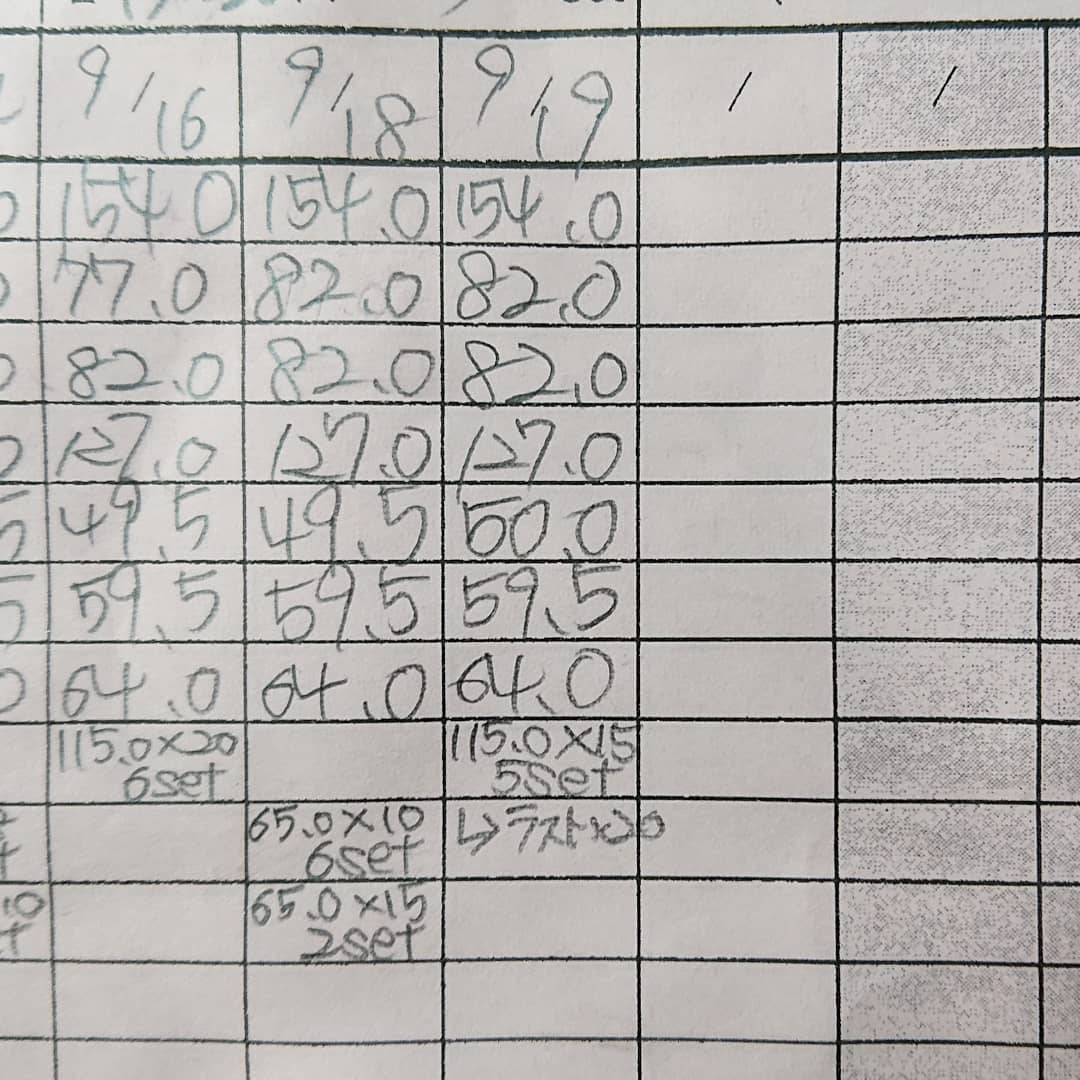 9/16 9/18 9/19 / /
154.0 154.0 154.0
77.0 82.0 82.0
82.0 82.0 82.0
127.0 127.0 127.0
49.5 49.5 50.0
59.5 59.5 59.5
64.0 64.0 64.0
115.0×20 115.0×15
6set 5set
65.0×10 ↳ラスト×20
6set
65.0×15
2set